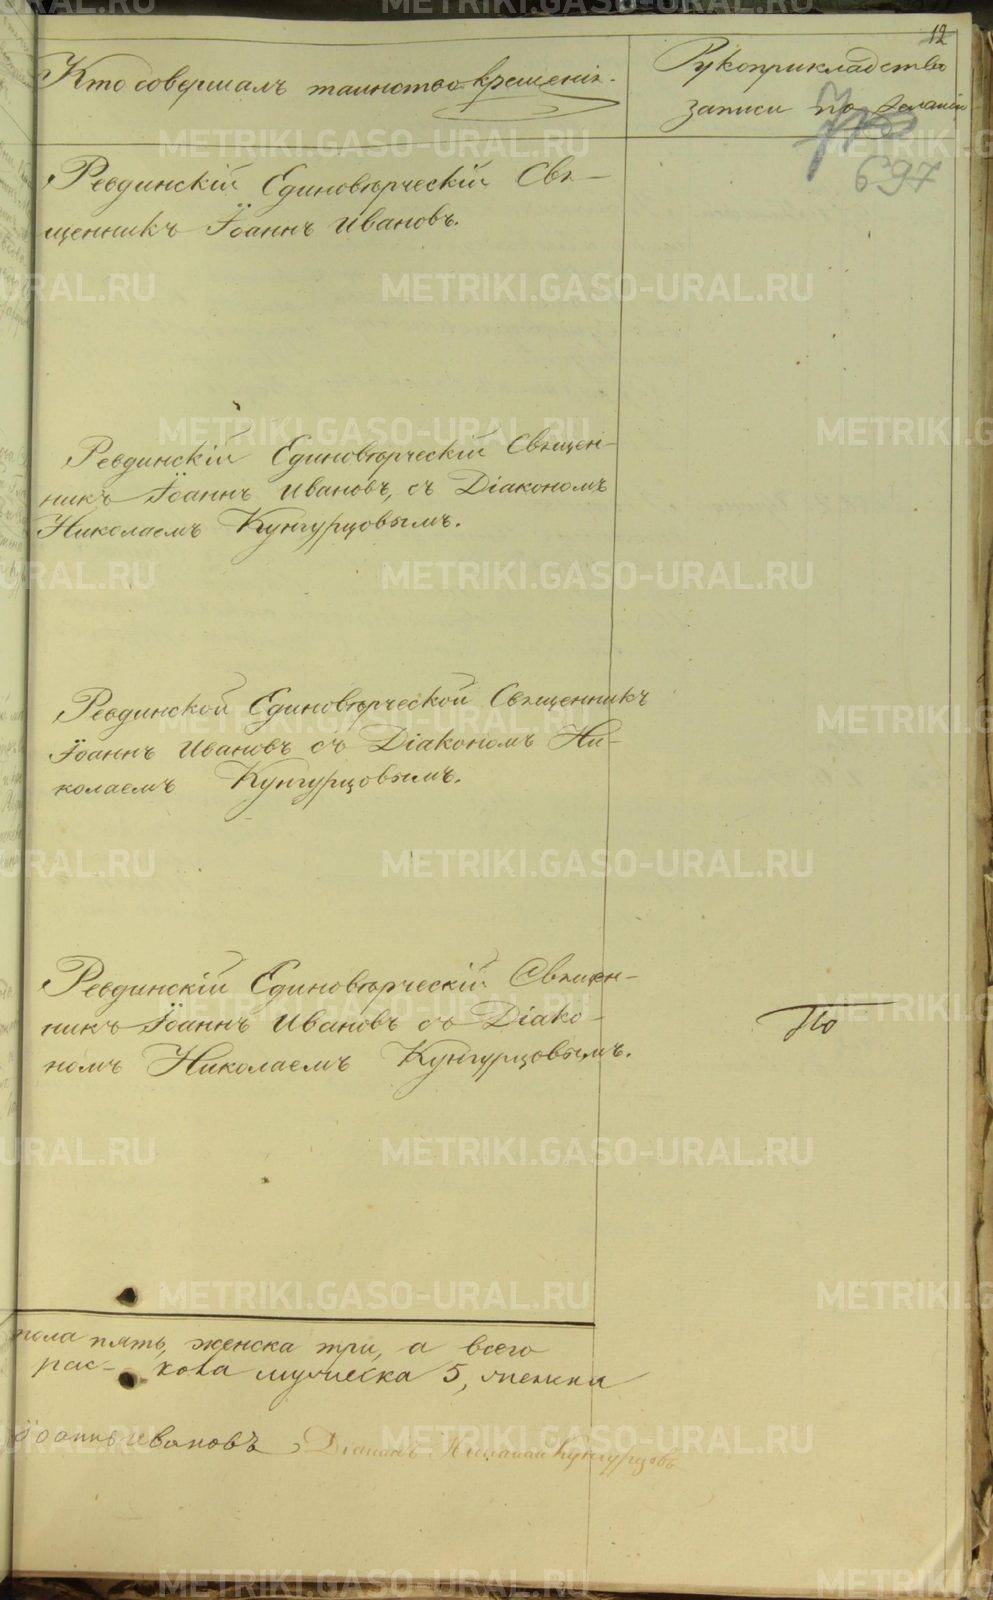 12
Кто совершалъ таинство крещенія.
Рукоприкладство
записи по желанію
697
Ревдинскій Единовѣрческій Свя-
щенникъ Іоаннъ Ивановъ.
Ревдинскій Единовѣрческій Священ-
никъ Іоаннъ Ивановъ, съ Діакономъ
Николаемъ Кунгурцовымъ.
Ревдинской Единовѣрческой Священникъ
Іоаннъ Ивановъ съ Діакономъ Ни-
колаемъ Кунгурцовымъ.
Ревдинскій Единовѣрческій Священ-
никъ Іоаннъ Ивановъ съ Діако-
номъ Николаемъ Кунгурцовымъ.
По
пола пять, женска три, а всего
рас- кола мужеска 5, женска
Іоаннъ Ивановъ, Діаконъ Николай Кунгурцовъ
METRIKI.GASO-URAL.RU